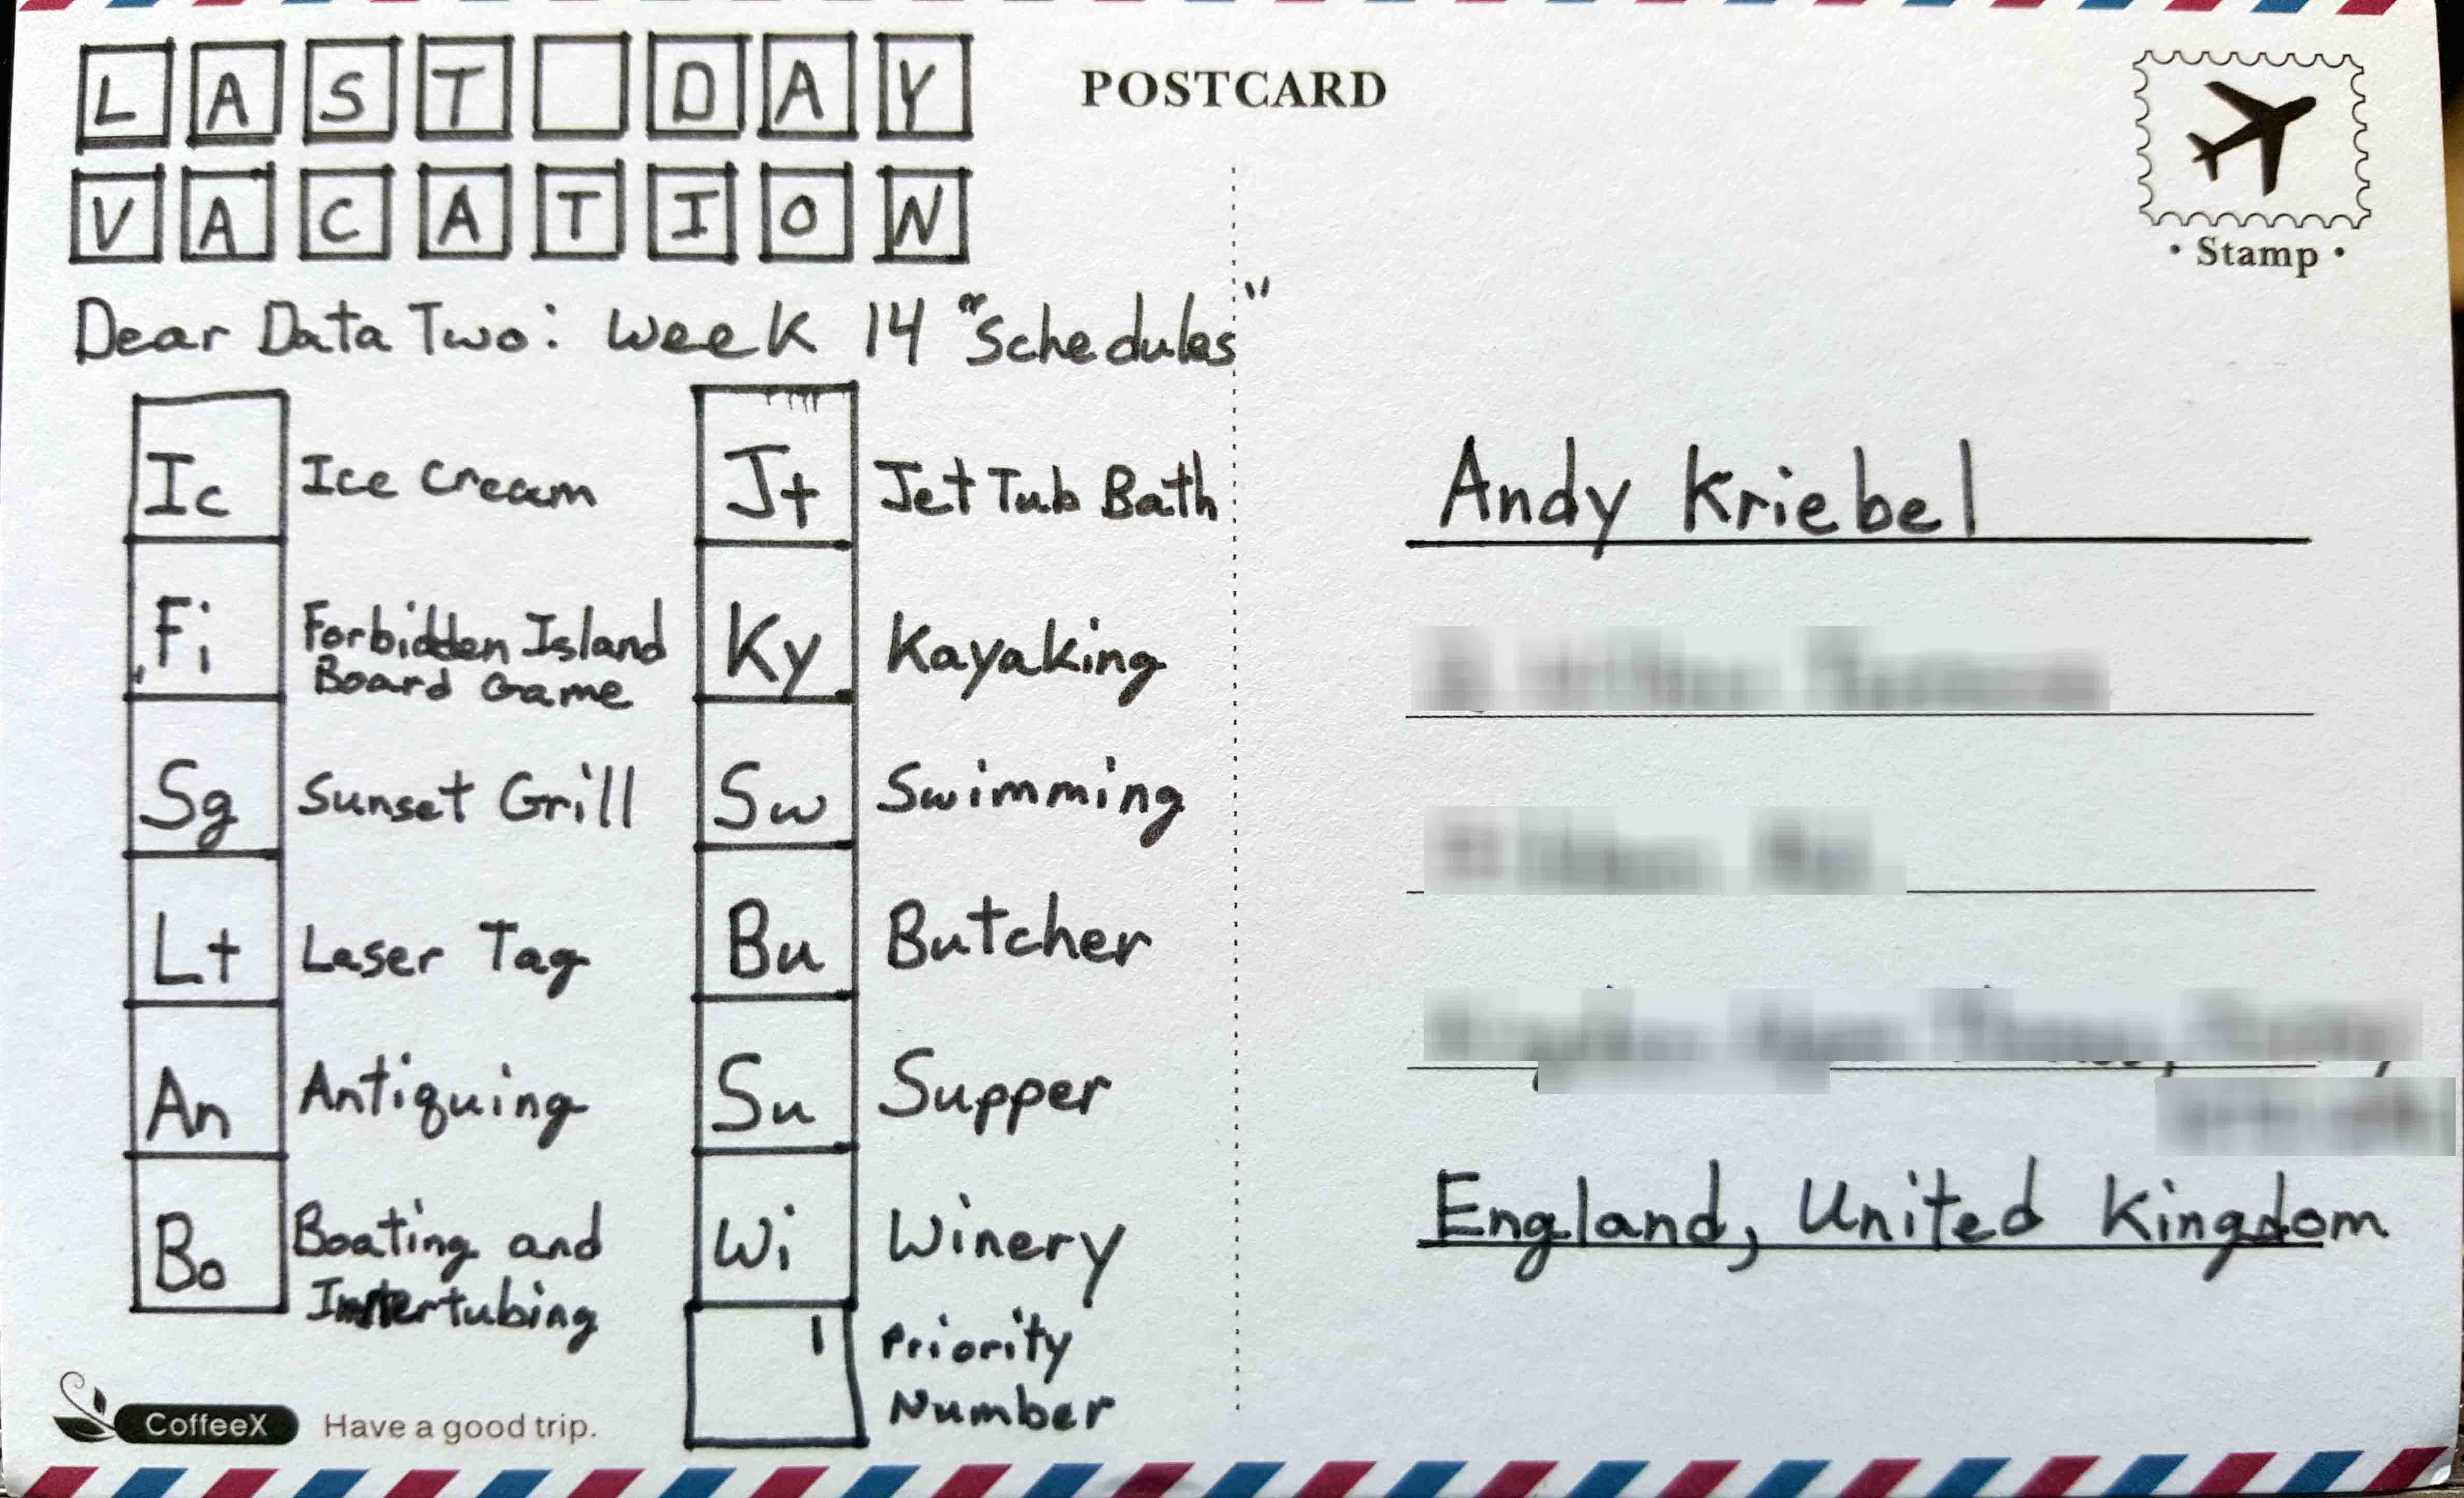 LAST DAY
VACATION
POSTCARD
• Stamp •
Dear Data Two: Week 14 "Schedules"
Ic Ice Cream
Fi Forbidden Island
Board Game
Sg Sunset Grill
Lt Laser Tag
An Antiquing
Bo Boating and
Innertubing
Jt Jet Tub Bath
Ky Kayaking
Sw Swimming
Bu Butcher
Su Supper
Wi Winery
1 Priority
Number
CoffeeX Have a good trip.
Andy Kriebel
England, United Kingdom